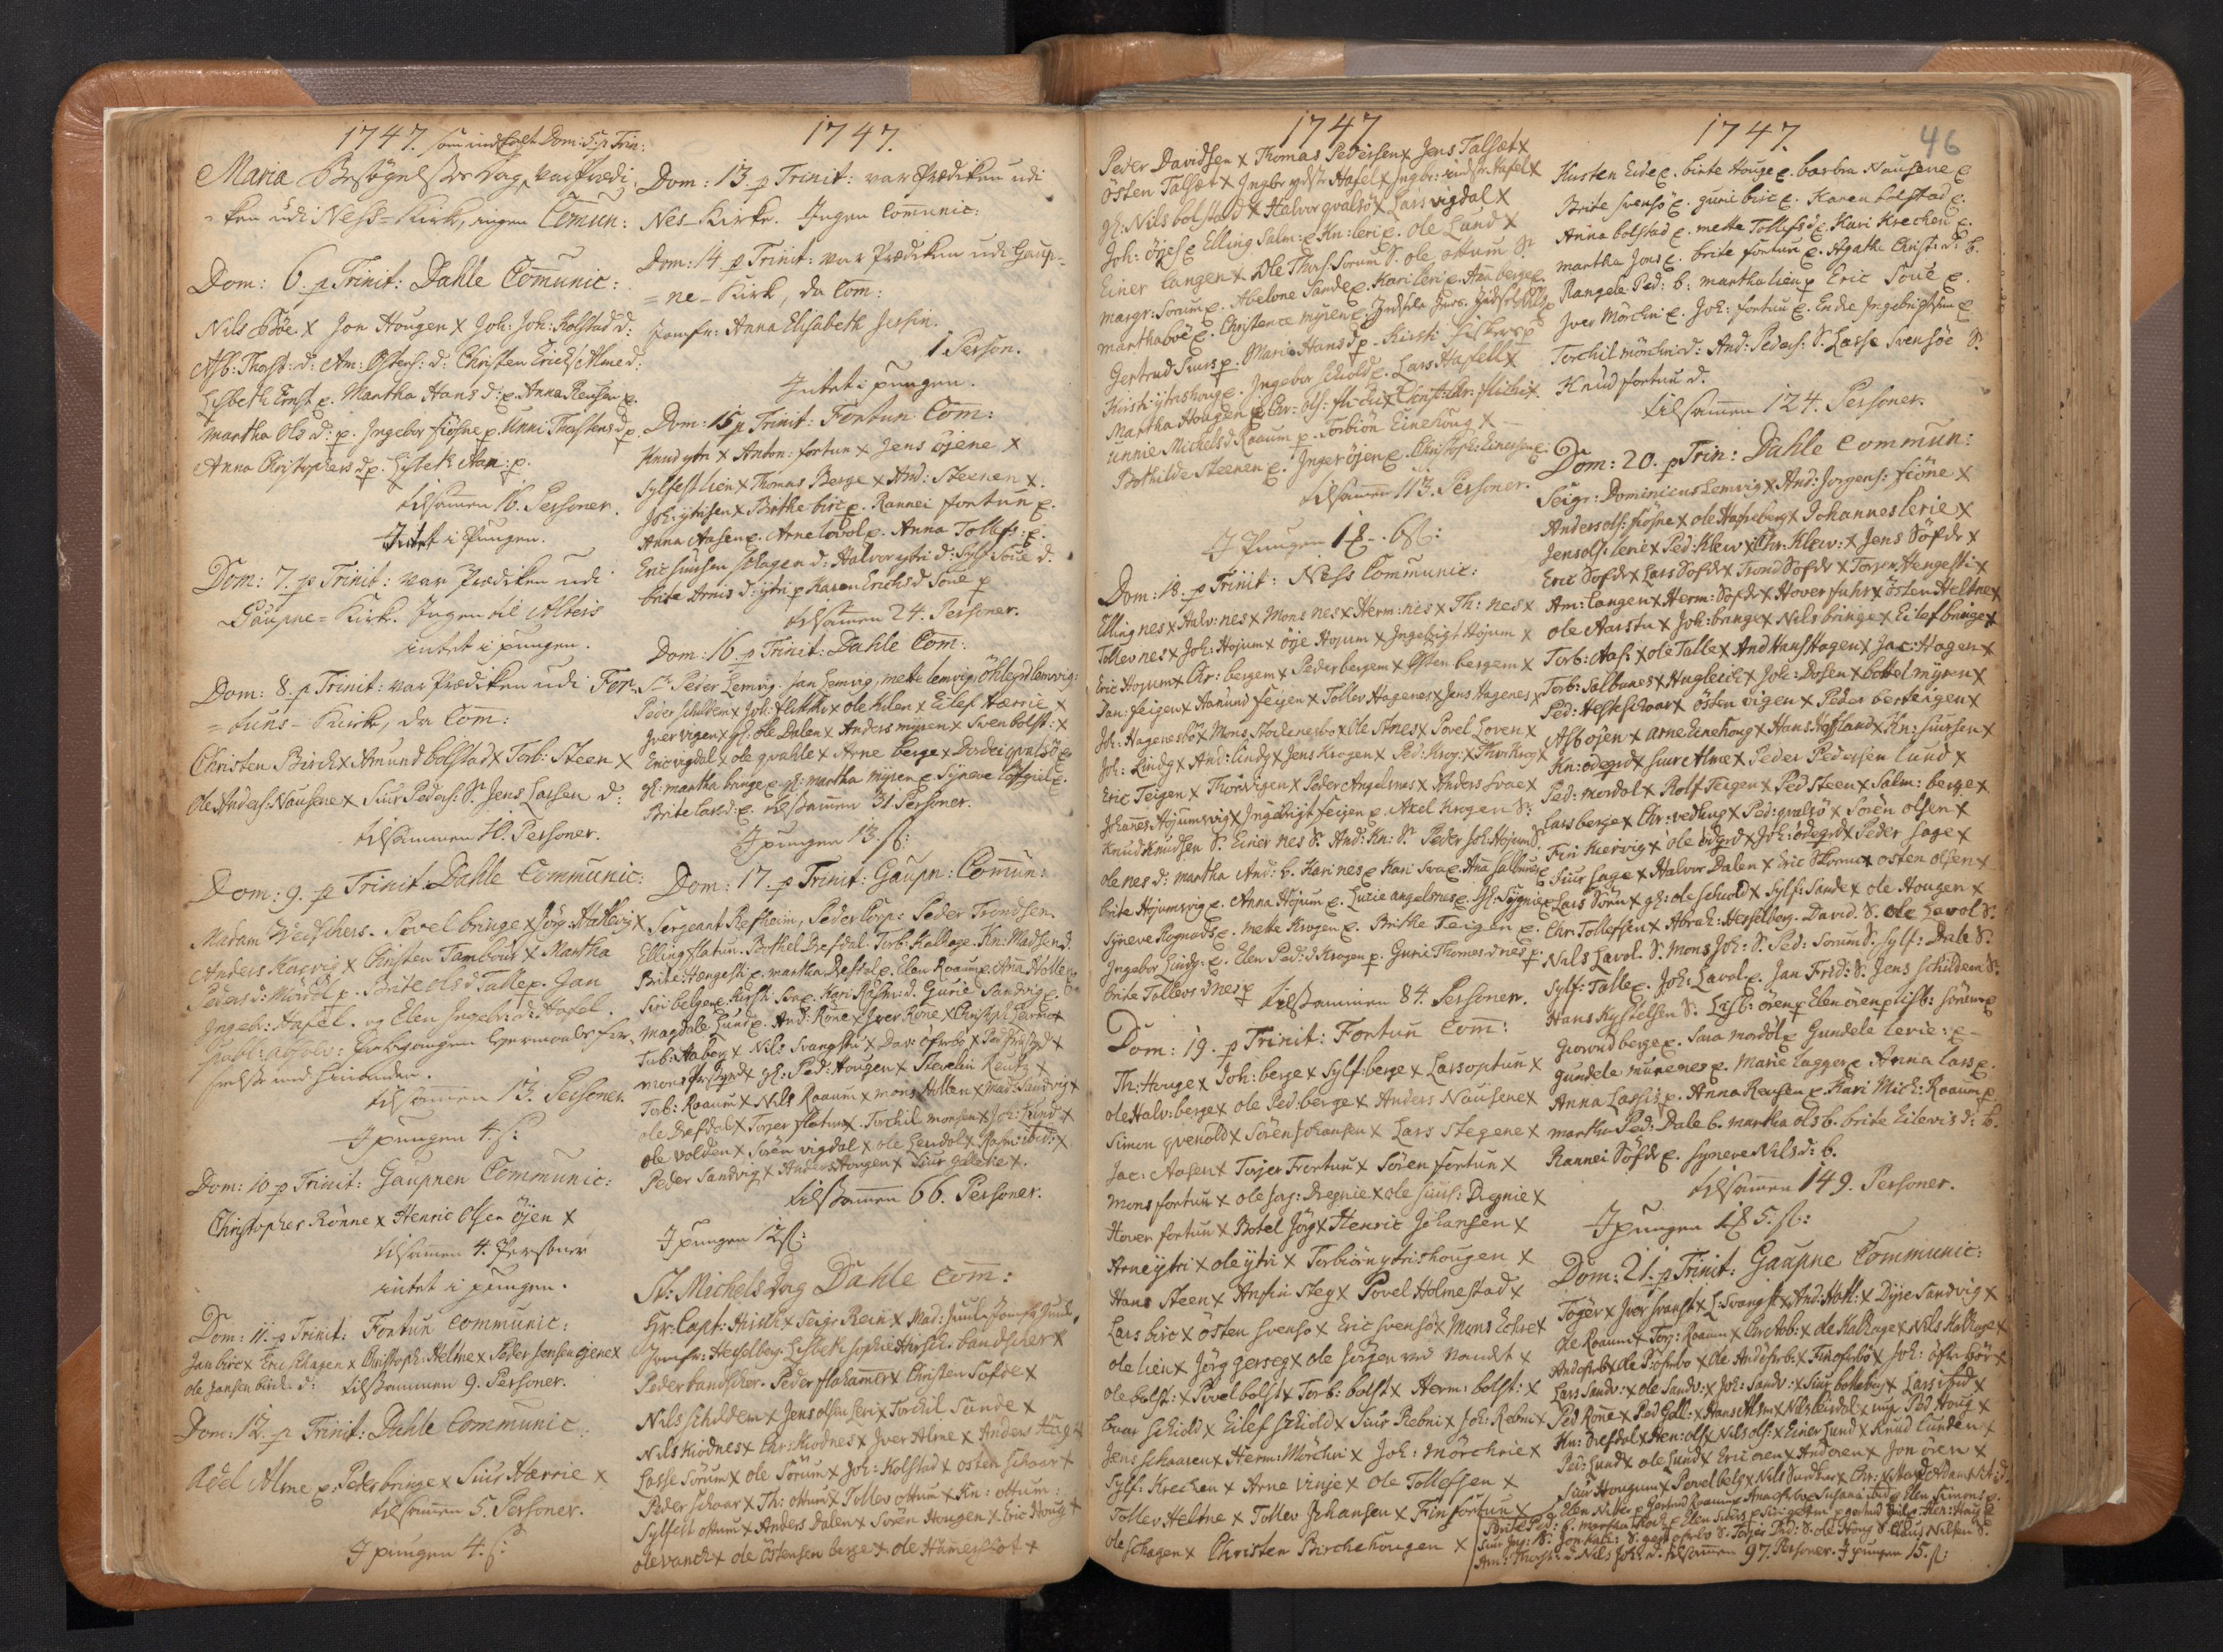 1747. som indfalt Dom: 5. p Trin:
Maria Besögelses Dag, var Prædi
ken udi Ness-Kirk, ingen Com̃un:
Dom: 6. p Trinit: Dahle Com̃unic:
Nils Böe x Jon Hougen x Joh: Joh: Kolstad d:
Asb: Thorst: d: Am: Ostens: d: Christen Erichs: Alme d:
Lisbeth Ernst e. Martha Hans d: e. Anna Reusen e.
Martha Ols d: p. Ingebor fiösne p. Unni Thorstens d p.
Anna Christophers d p. Lisbeth Aan: p.
tilsam̃en 16. Personer.
Intet i Pungen.
Dom: 7. p Trinit: var Prædiken udi
Gaupne-Kirk. Ingen til Alters
intet i pungen.
Dom: 8. p Trinit: var Prædiken udi For
=tuns-Kirk, da Com̃:
Christen Birch x Amund bolstad x Torb: Steen x
Ole Anders: Nausene x Siur Peders: S. Jens Larsen d:
tilsam̃en 10. Personer.
Dom: 9. p Trinit: Dahle Communic:
Madam Weischers. Povel bringe x Jörg: Hattevig x
Anders Kiervig x Christen Tambour x Martha
Peders d: Mördöl p. Brite ols d Talle p. Jan
Ingebr: Hafel. og Elen Ingebr: d: Hafel.
publ: absolv:
tilsam̃en 13. Personer.
I pungen 4. s:
Dom: 10 p Trinit: Gaupnen Communic:
Christopher Rönne x Henric Olsen öjen x
tilsam̃en 4. Personer
intet i pungen.
Dom: 11. p Trinit: Fortun Communic:
Jan birc x Eric Schagen x Christoph: Helme x Peder Jensen öjene x
ole Jansen birch. d: tilsam̃en 9. Personer.
Dom: 12. p Trinit: Dahle Communic.
Adel Alme p. Peder bringe x Siur Hærrie x
tilsam̃en 5. Personer.
I pungen 4. s:
1747.
Dom: 13. p Trinit: var Prædiken udi
Nes-Kirke. Ingen Com̃unic:
Dom: 14 p Trinit: var Prædiken udi Gaup-
=ne-Kirk, da Com:
Jomfr: Anna Elisabeth Jersin.
1 Person.
Intet i pungen.
Dom: 15 p Trinit: Fortun Com̃:
Knud ytri x Anton: fortun x Jens öjene x
Sylfest lien x Thomas Berge x And: Steenen x.
Joh: ytrisen x Birthe birc e. Rannei fortun e.
Anna Aasen e. Arne lövöl e. Anna Tollefs: e.
Eric Siursen Schagen d: Halvor ytri d: Sylf: Soue d.
brite Arnis d: ytri p Karen Erichs d Soue p
tilsam̃en 24. Personer.
Dom: 16. p Trinit: Dahle Com̃:
Sr Peder Lemvig. Jan Lemvig, mette lemvig, Öhlegrd lemvig:
Peder Schilden x Joh: Klokker x ole Kilen x Eilef Hærrie x
Iver vigen x gl: ole Dalen x Anders myren x Sven bolst: x
Eric vigdal x ole qvahle x Arne berge x Dordei qvalsö e
gl: martha bringe e gl: martha myren e Synneve
Brite e. tilsam̃en 31. Personer.
I pungen 13. s:
Dom: 17. p Trinit: Gaupn: Com̃un:
Sergeant Refheim, Peder Corp: Peder Trondsen
Elling flatun. Bothel Drefdal. Torb: Kalhage. Kn: Madsen d.
Brite: Hengesti e. martha Drefdal e. Elen Roaum e. Anna Molle
Siri belge e. Kirst: e. Kari Rasm: d. Gurie Sandvig e.
Magdele Lund e. And: Röne x Iver Röne x Christoph:
Torb: Aaberg x Nils Svangstu x Dav: öfrebö x
mons x gl: Ped: Hougen x Thevelin Kreutz x
Torb: Roaum x Nils Roaum x mons Mollen x Mad: Sandvig x
ole Drefdal x Torjer flatun x Torchil monsen x Joh: Lund x
ole volden x Sören vigdal x ole Leirdöl x Rasm: ibid: x
Peder Sandvig x Anders Hougen x Siur Gillerie x.
tilsam̃en 66. Personer.
I pungen 12 s:
St: Michels Dag Dahle Com̃:
Hr: Capt: Hirsch x Seigr Rein x Mad: Juul x Jomfr Juul.
Jomfr: Hesselberg. Lisbeth Sophie Hirsch. bandscher x
Peder bandscher. Peder flahamer x Christen Sofde x
Nils Schilden x Jens olsen leri x Torchil Sande x
Nils Kiodnes x Chr: Kiodnes x Iver Alme x Anders Haug x
Lasse Sörum x ole Sörum x Joh: Kolstad x osten Schaar x
Peder Schaar x Th: ottum x Tollev ottum x Kn: ottum:
Sylfest ottum x Anders Dalen x Sören Hougen x Eric Houg x
ole vanch x ole Östensen berge x ole Hamerslot x
1747
Peder Davidsen x Thomas Pedersen x Jens Talsæt x
Östen Talsæt x Ingbr: ydstr: Hafel x Ingbr: indstr: Hafel x
gl: Nils bolstad x Helvor qvalsö x Lars Vigdal x
Joh: öyes e Elling Salm: e Kn: leri e. ole Lund x
Einer langen x. Ole Thors: Sorum S. ole ottum S.
margr: Sorum e. Abelone Sande e. Kari leri e. Anna berge e
martha böe e. Christence myren e.
Gertrud Siurs p. Marie Hans d p. Kirsti
Kirsti ytrishoug e. Ingebor Schiold e. Lars Hafell x
Martha Hougen e Chr: ols: x
unnie Michels d Roaum p. Torbiön Einehöug x
Bothilde Steenen e. Inger öjen e. Christoph: Einersen e.
tilsam̃en 113. Personer.
I Pungen 1 - 6 s:
Dom: 18. p Trinit: Ness Communic:
Elling nes x Halv: nes x Mons nes x Herm: nes x Th: nes x
Tollev nes x Joh: Hojum x öye Hojum x Ingebrigt Hojum x
Eric Hojum x Chr: bergem x Peder bergem x Östen bergem x
Dan: feigen x Hanund feigen x Tollev Hagenes x Jens Hagenes x
Joh: Hagenesbö x Mons x ole Stnes x Povel Loven x
Joh: Lindg x And: lindg x Jens Krogen x Ped: Krog: x Thor: Krog x
Eric Teigen x Thor: Vigen x Peder Angelsnes x Anders Svae x
Johannes Hojumsvig x Ingebrigt feigen e Axel Krogen S.
Knud Knudsen S. Einer nes S. And: Kn: S. Peder Joh: Hojum S.
ole nes d: martha And: b. Kari nes e Kari Svae e. Ana Salbunes e
brite Hojumsvig e. Anna Hojum e. Lucie angelsnes e.
Syneve Rognads e. Mette Krogen e. Brithe Teigen e.
Ingebor Lindg: e. Elen Ped: d. Krogen p. Guri Thomes d nes p.
brite Tollevs d nes p tilsammen 84. Personer.
Dom: 19. p Trinit: Fortun Com̃:
Th: Houge x Joh: berge x Sylf: berge x Lars optun x
ole Halv: berge x ole Ped: berge x Anders Nausene x
Simon qvenold x Sören Johansen x Lars Stegene x
Jac: Aasen x Torjer Frortun x Sören fortun x
Mons fortun x ole Jog: Dregnie x ole Siurs: Dregnie x
Hover fortun x Botel Jörg x Henric Johansen x
Arne ytri x ole ytri x Torbiörn ytrishougen x
Hans Steen x Ansin Steg x Povel Holmestad x
Lars birc x östen Svensö x Eric Svensö x Mons Echre x
ole lien x Jörg gerseg x ole Jörgen ved Vandet x
ole bolst: x Povel bolst x Torb: bolst x Herm: bolst: x
Baar Schiold x Eilef Schiold x Siur Rebni x Joh: Rebni x
Jens Schaaren x Herm: Mörchri x Joh: Mörchrie x
Sylf: Krechen x Arne Vinje x Ole Tollefsen x
Tollev Heltne x Tollev Johansen x Fin fortun x
ole Schagen x Christen Birchehougen x
1747. 46
Karsten Eide e. birte Houge e. barbra Nausene e
Brite Svensö e. guri birc e. Karen bolstad e.
Anna bolstad e. mette Tollefs d e. Kari Krechen e.
martha Jons e. brite fortun e. Agathe Christ: d: b.
Rangele Ped: b: martha lien p Eric Soue e.
Iver Mörchri e. Joh: fortun e. Endre Ingebrigtsen e
Torchil mörchri d: And: Peders: S. Lasse Svensöe S.
Knud fortun d.
tilsam̃en 124. Personer.
Dom: 20. p Trin: Dahle Commun:
Seigr: Dominicus Lemvig x And: Jorgens: fiöne x
Anders ols: fiösne x ole Hasseberg x Johannes lerie x
Jens ols: leri x Ped: Klew x Chr: Klew: x Jens Söfde x
Eric Sofde x Lars Sofde x Trond Sofde x Torger Hengesti x
Am: langen x Herm: Sofde x Hover fuhr x östen Heltne x
ole Aarstu x Joh: bringe x Nils bringe x Eilef bringe x
Torb: Aas: x ole Talle x And Hans Hagen x Jac: Hagen x
Torb: Salbunes x Hugleich x Joh: Dösen x bottel myren x
Ped: Hesteschaar x östen vigen x Peder berteigen x
Asb öjen x arne Einehoug x Hans Hafsland x Kn: Siursen x
Kn: ödegrd x Siur Alme x Peder Pedersen Lund x
Ped: mordöl x Rolf Teigen x Ped Steen x Salm: berge x
Lars berge x Chr: vedhug x Ped: qvalsö x Sören olsen x
Fin Kiervig x ole ödgrd x Joh: ödegrd x Peder Sage x
Siur Sage x Halvor Dalen x Eric x osten olsen x
Lars Sörn x gl: ole Schiold x Sylf: Sande x ole Hougen x
Chr: Tollefsen x Abrah: Hesselberg. David. S. ole Lavol S.
Nils Lavol. S. Mons Joh: S. Ped: Sorum S. Sylf: Dale S.
Sylf: Talle e. Joh: Lavol e. Jan Frid: S. Jens Schilden S.
Hans Kystelsen S. Lisb: ören p Elen ören p lisb: sörem p
Guorond berge e. Sara mordöl e Gundela lerie: e -
Gundele murenes e. Marie lagger e Anna lars e.
Anna Lassis e. Anna Reusen e. Kari Mich: Roaum p
martha Ped: Dale b. martha ols b. brite Eilevis d: b.
Rannei Söfde e. Syneve Nils d: b.
tilsam̃en 149. Personer.
I pungen 5. s:
Dom: 21. p Trinit: Gaupne Communic:
Toger x Iver Svangst x L: Svangst x And: Moth: x Dyre Sandvig x
Ole Roaum x Torg: Roaum x Chr Aab: x ole Kalhage x Nils Kalhage x
And öfreb x ole P: öfrebo x ole And öfrb: x Fin öfrebö x Joh: öfrebör x
Lars Sandv: x ole Sandv: x Joh: Sandv: x Siur x Lars x
Ped Röne x Ped Gill: x Hans Alsm x Nils x ung Ped Houg x
Kn: Drefdal x Hen: ols x Nils ols: x Einer Lund x Knud Lunden x
Ped: Lund x ole Lund x Eric ören x And ören x Jon ören x
Siur Hougum x Povel belg x Nils x Chr:
tilsam̃en 97. Personer. I pungen 15. s: